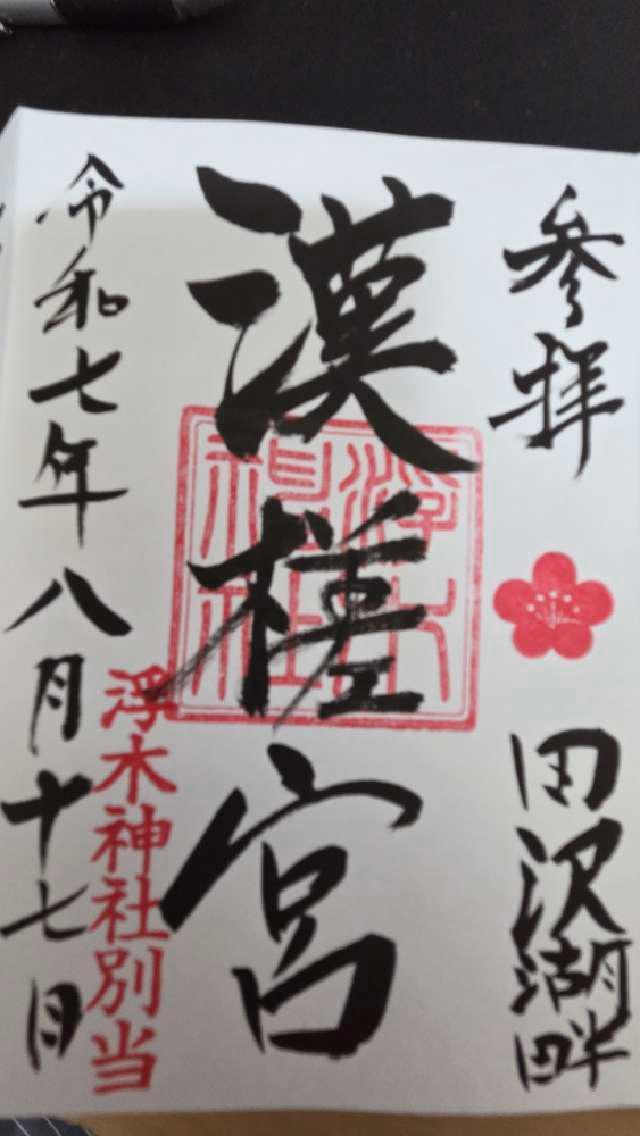 参拝
田沢湖畔
漢槎宮
浮木神社
浮木神社別当
令和七年八月十七日